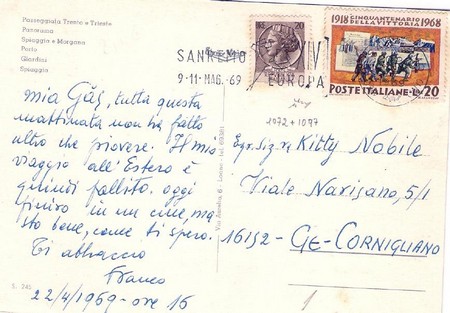 Passeggiata Trento e Trieste
Panorama
Spiaggia e Margana
Porto
Giardini
Spiaggia
SANREMO
9-11-MAG.-69
VIVI
EUROPA
1918 CINQUANTENARIO 1968
DELLA VITTORIA
POSTE ITALIANE L. 20
1072 + 1097
mia Gás, tutta questa
mattinata non ha fatto
altro che piovere. Il mio
viaggio all'Estero è
quindi fallito. oggi
finirò in un cine, ma
sto bene, come ti spero.
Ti abbraccio
Franco
22/4/1969 - ore 16
Egr. Sig.na Kitty Nobile
Viale Narisano, 5/1
16152 - GE-CORNIGLIANO
S. 745
Via Aurelia, 6 - Loano
1